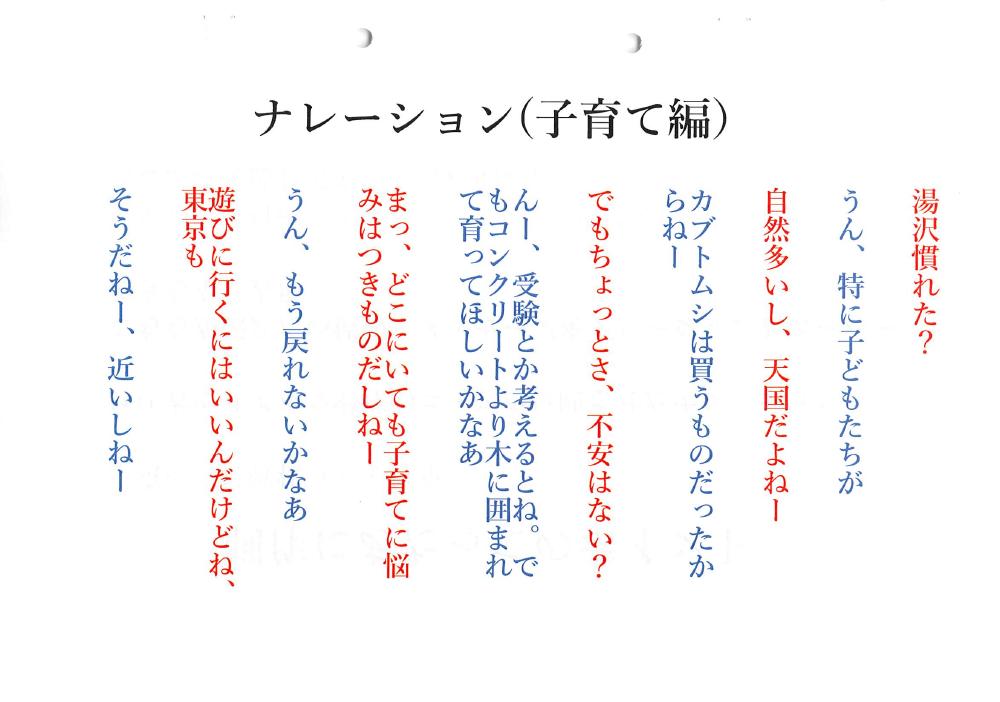 ナレーション(子育て編)
湯沢慣れた？
うん、特に子どもたちが
自然多いし、天国だよねー
カブトムシは買うものだったか
らねー
でもちょっとさ、不安はない？
んー、受験とか考えるとね。で
もコンクリートより木に囲まれ
て育ってほしいかなあ
まっ、どこにいても子育てに悩
みはつきものだしねー
うん、もう戻れないかなあ
遊びに行くにはいいんだけどね、
東京も
そうだねー、近いしねー